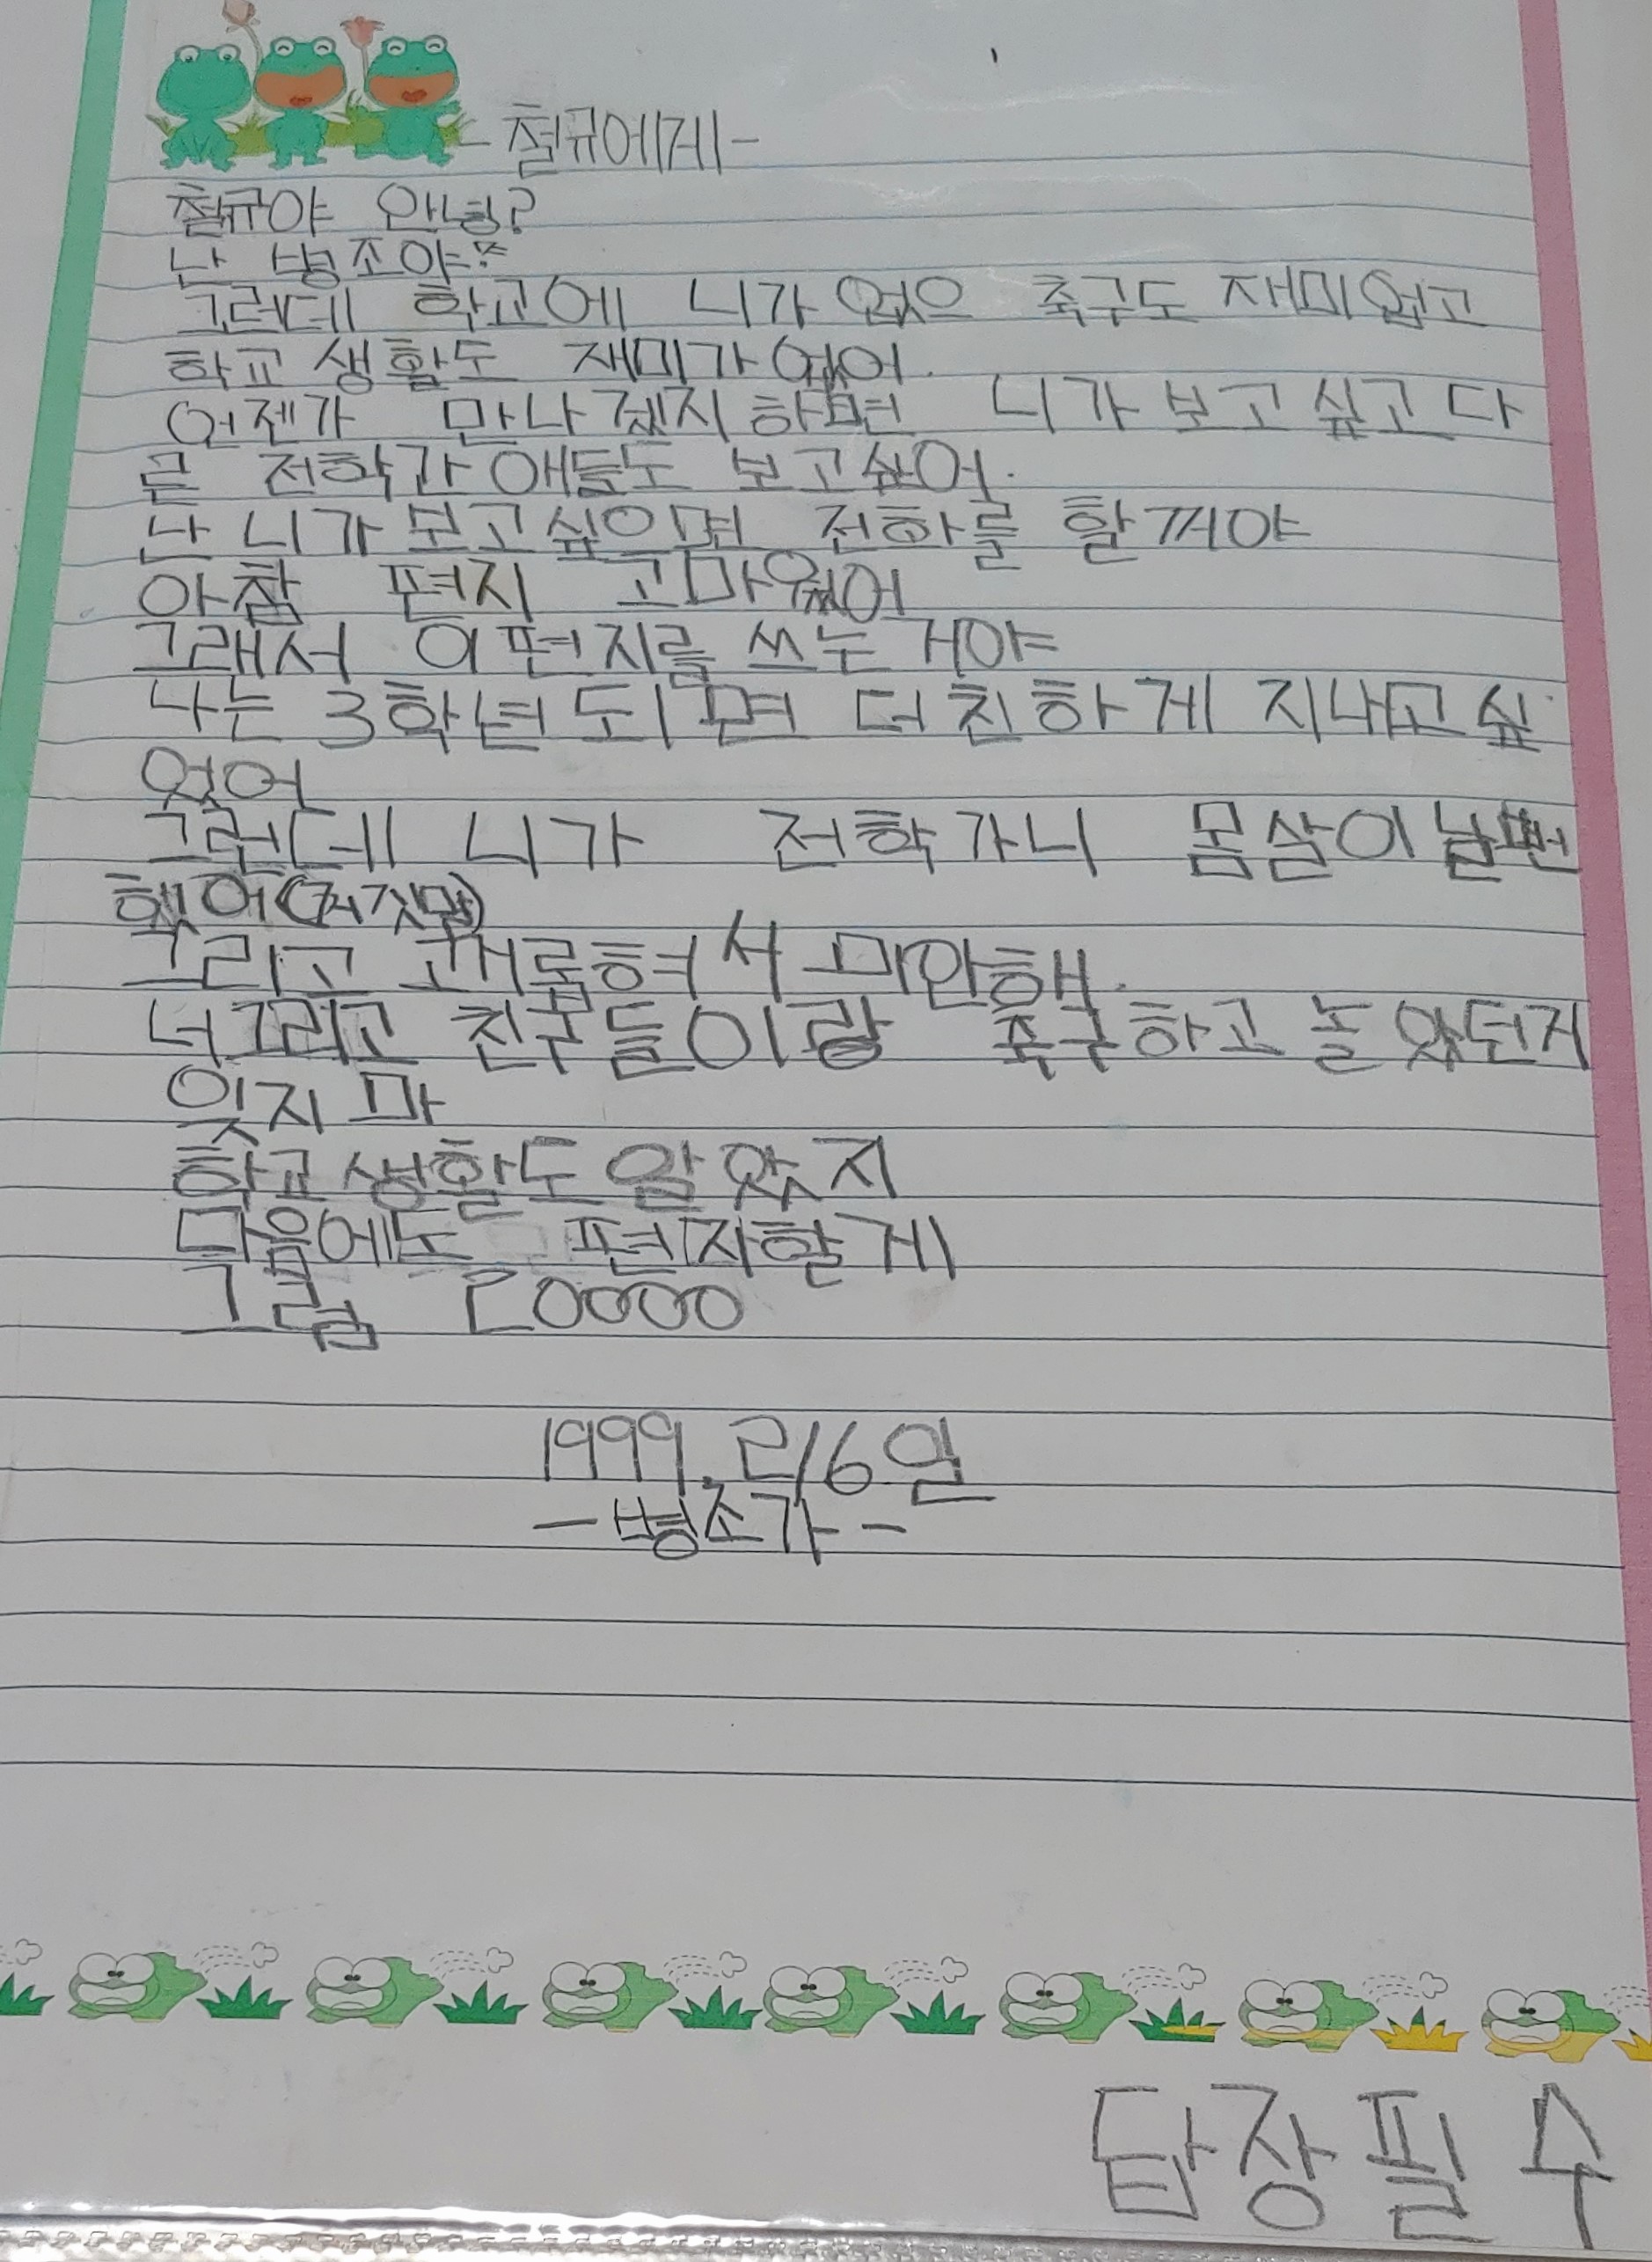 - 철규에게 -
철규야 안녕?
난 병조야
그런데 학교에 니가 없으 축구도 재미 없고
학교 생활도 재미가 없어.
언젠가 만나겠지 하면 니가 보고 싶고 다
른 전학간 애들도 보고 싶어.
난 니가 보고 싶으면 전하를 할꺼야
아참 편지 고마웠어
그래서 이 편지를 쓰는 거야
나는 3학년 되면 더 친하게 지내고 싶
었어
그런데 니가 전학가니 몸살이 날뻔
했어(거짓말)
그리고 괴롭혀서 미안해.
너 그리고 친구들이랑 축구하고 놀았던거
잊지마
학교 생활도 알았지
다음에도 편지할게
그럼 20000
1999. 2/6일
- 병조가 -
답장필수